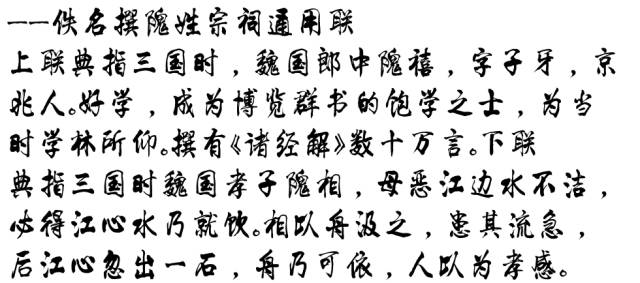 ——佚名撰隗姓宗祠通用联
上联典指三国时，魏国郎中隗禧，字子牙，京
兆人。好学，成为博览群书的饱学之士，为当
时学林所仰。撰有《诸经解》数十万言。下联
典指三国时魏国孝子隗相，母恶江边水不洁，
必得江心水乃就饮。相以舟汲之，患其流急，
后江心忽出一石，舟乃可依，人以为孝感。